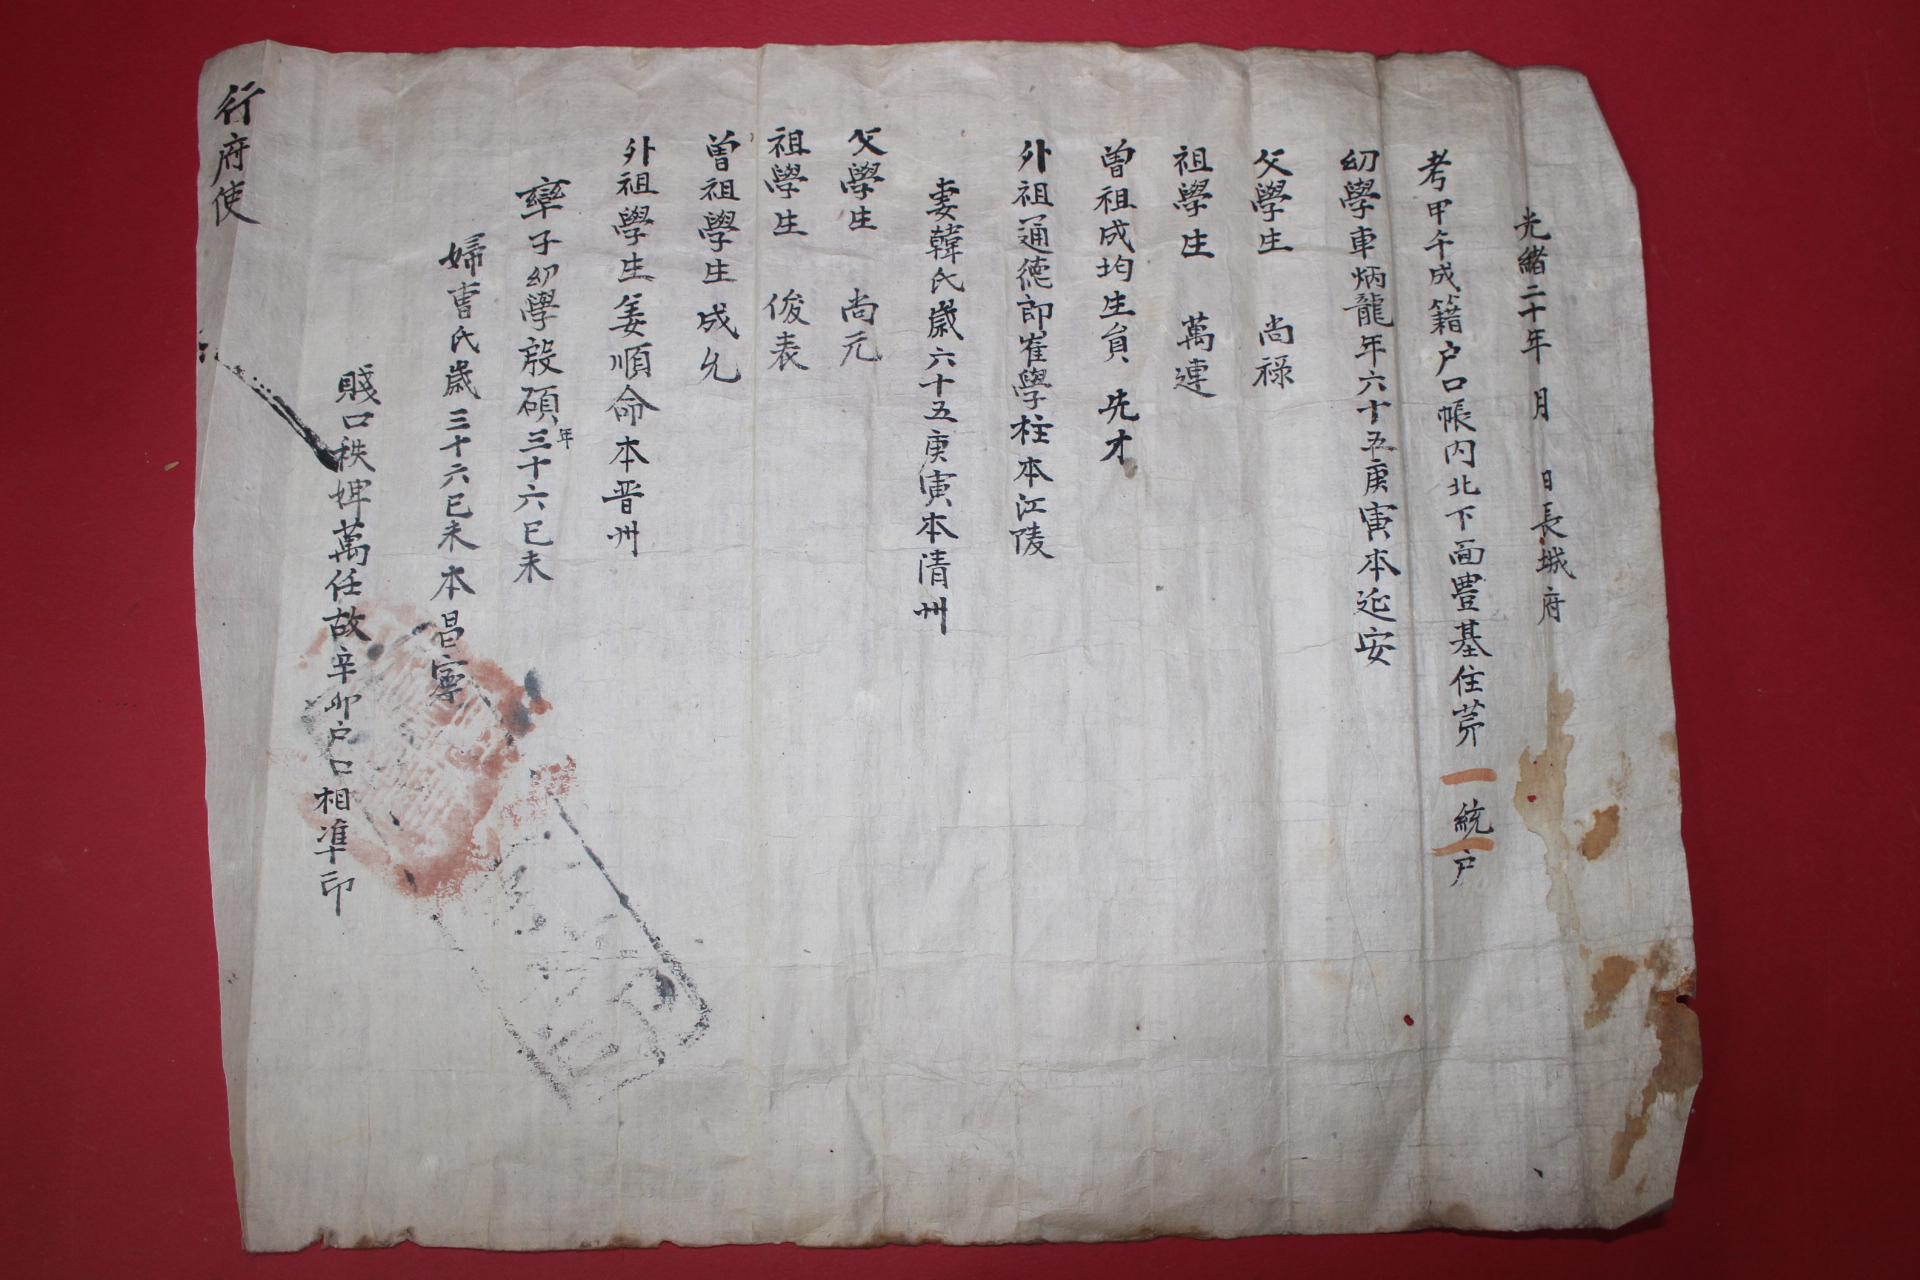 光緒二十年 月 日長城府
考甲午成籍户口帳內北下面豊基住芹一統一户
幼學車炳龍年六十五庚寅本延安
父學生 尚祿
祖學生 萬連
曾祖成均生員 先才
外祖通德郎崔學柱本江陵
妻韓氏歲六十五庚寅本清州
父學生 尚元
祖學生 俊表
曾祖學生 成允
外祖學生姜順命本晋州
率子幼學殷碩年三十六己未
婦曺氏歲三十六己未本昌寧
賤口秩婢萬任故辛卯户口相準印
行府使